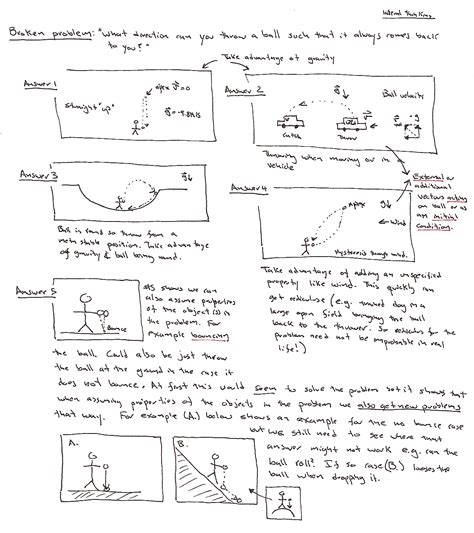 Lateral Thinking
Broken problem: "What direction can you throw a ball such that it always comes back
to you?"
Take advantage of gravity
Answer 1
apex v=0
straight "up"
g=-9.8m/s
Answer 2
g↓
Ball velocity
Catch
Throw
Throwing when moving or in
vehicle
Answer 3
g↓
Ball is round so throw from a
meta stable position. Take advantage
of gravity & ball being round.
External or
additional
vectors acting
on ball or as
an initial
condition.
Answer 4
Apex
g↓
← wind
Hysteresis through wind.
Take advantage of adding an unspecified
property like wind. This quickly can
get rediculous (e.g. trained dog in a
large open field bringing the ball
back to the thrower. So rediculus for the
problem need not be improbable in real
life!)
Answer 5
Bounce
shows we can
also assume properties
of the object(s) in
the problem. For
example bouncing
the ball. Could also be just throw
the ball at the ground in the case it
does not bounce. At first this would seem to solve the problem but it shows that
when assuming properties of the objects in the problem we also get new problems
that way. For example (A.) below shows an example for the no bounce case
but we still need to see where that
answer might not work e.g. can the
ball roll? If so case (B.) looses the
ball when dropping it.
A.
B.